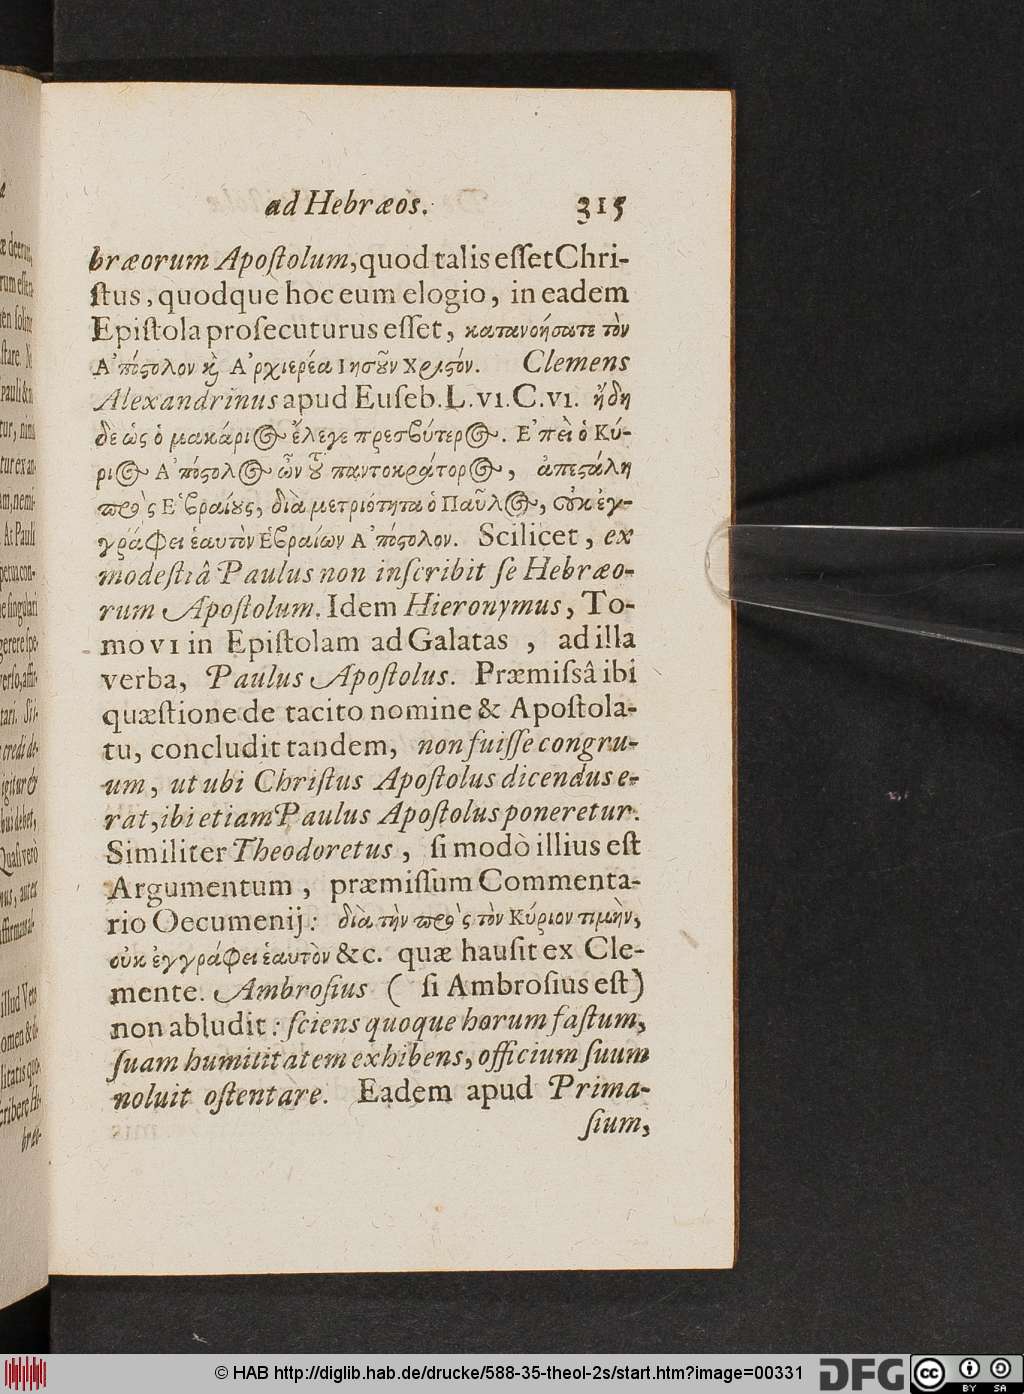 ad Hebræos. 315
bræorum Apoſtolum, quod talis eſſet Chri-
ſtus, quodque hoc eum elogio, in eadem
Epiſtola proſecuturus eſſet, κατανοήσωτε τὸν
Α᾿πόςολον κὶ Α᾿ρχιερέα Ιησοῦν Χριςόν. Clemens
Alexandrinus apud Euſeb. L. VI. C. VI. ἤδη
δὲ ὡς ὁ μακάριος ἔλεγε πρεσβύτερος. Ε᾿πεὶ ὁ Κύ-
ριος Α᾿πόςολος ὢν τοῦ παντοκράτορος, ἀπεςάλη
πρὸς Ε῾βραίους, διὰ μετριότητα ὁ Παῦλος, οὐκ ἐγ-
γράφει ἑαυτὸν Εβραίων Α᾿πόςολον. Scilicet, ex
modeſtiâ Paulus non inſcribit ſe Hebræo-
rum Apoſtolum. Idem Hieronymus, To-
mo VI in Epiſtolam ad Galatas, ad illa
verba, Paulus Apoſtolus. Præmiſsâ ibi
quæſtione de tacito nomine & Apoſtola-
tu, concludit tandem, non fuiſſe congru-
um, ut ubi Chriſtus Apoſtolus dicendus e-
rat, ibi etiam Paulus Apoſtolus poneretur.
Similiter Theodoretus, ſi modò illius eſt
Argumentum, præmiſſum Commenta-
rio Oecumenij: διὰ τὴν πρὸς τὸν Κύριον τιμὴν,
οὐκ ἐγγράφει ἑαυτὸν &c. quæ hauſit ex Cle-
mente. Ambroſius ( ſi Ambroſius eſt)
non abludit: ſciens quoque horum faſtum,
ſuam humilitatem exhibens, officium ſuum
noluit oſtentare. Eadem apud Prima-
ſium,
© HAB http://diglib.hab.de/drucke/588-35-theol-2s/start.htm?image=00331 DFG cc BY SA